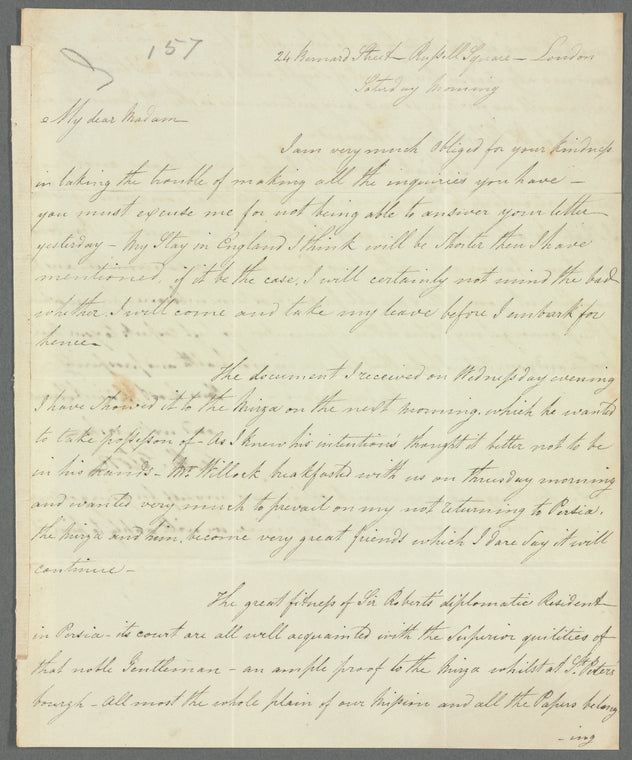 157
24 Bernard Street - Russell Square - London
Saterday Morning
My dear Madam
I am very much obliged for your kindness
in taking the trouble of making all the inquiries you have -
you must excuse me for not being able to answer your letter
yesterday - My Stay in England I think will be Shorter then I have
mentioned, if it be the case, I will certainly not mind the bad
whether I will come and take my leave before I embark for
hence -
The document I received on Wednessday evening
I have Showed it to the Mirza on the next morning, which he wanted
to take possesson of - As I knew his intention's thought it better not to be
in his hands - Mr. Willock breakfasted with us on thruesday morning
and wanted very much to prevail on my not returning to Persia,
the Mirza and him become very great friends which I dare Say it will
continue -
The great fitness of Sir Robert's diplomatic Resident
in Persia - its court are all well acquainted with the Superior quilities of
that noble Gentleman - an ample proof to the Mirza whilst at St. Peters'
bourgh - All most the whole plain of our Mission and all the Papers belong
-ing